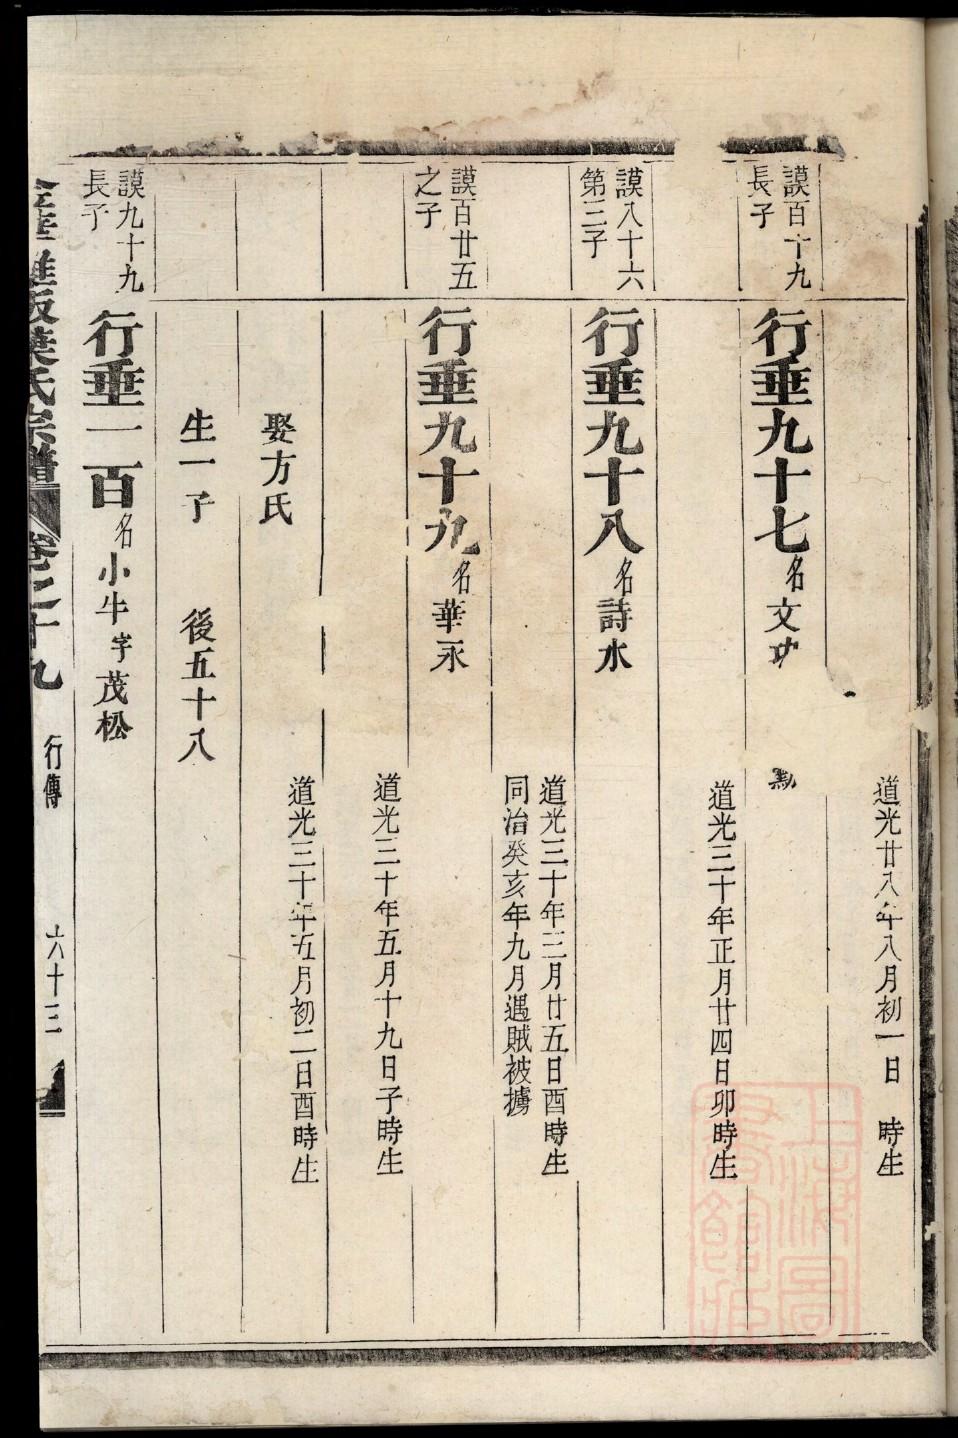 道光廿八年八月初一日　時生
謨百十九
長子
行垂九十七名文功
道光三十年正月廿四日卯時生
謨八十六
第三子
行垂九十八名詩水
道光三十年三月廿五日酉時生
同治癸亥年九月遇賊被擄
謨百廿五
之子
行垂九十九名華永
道光三十年五月十九日子時生
娶方氏
道光三十年五月初二日酉時生
生一子　後五十八
謨九十九
長子
行垂一百名小牛字茂松
葉氏宗譜　卷之十九　行傳　六十三
上海圖書館藏